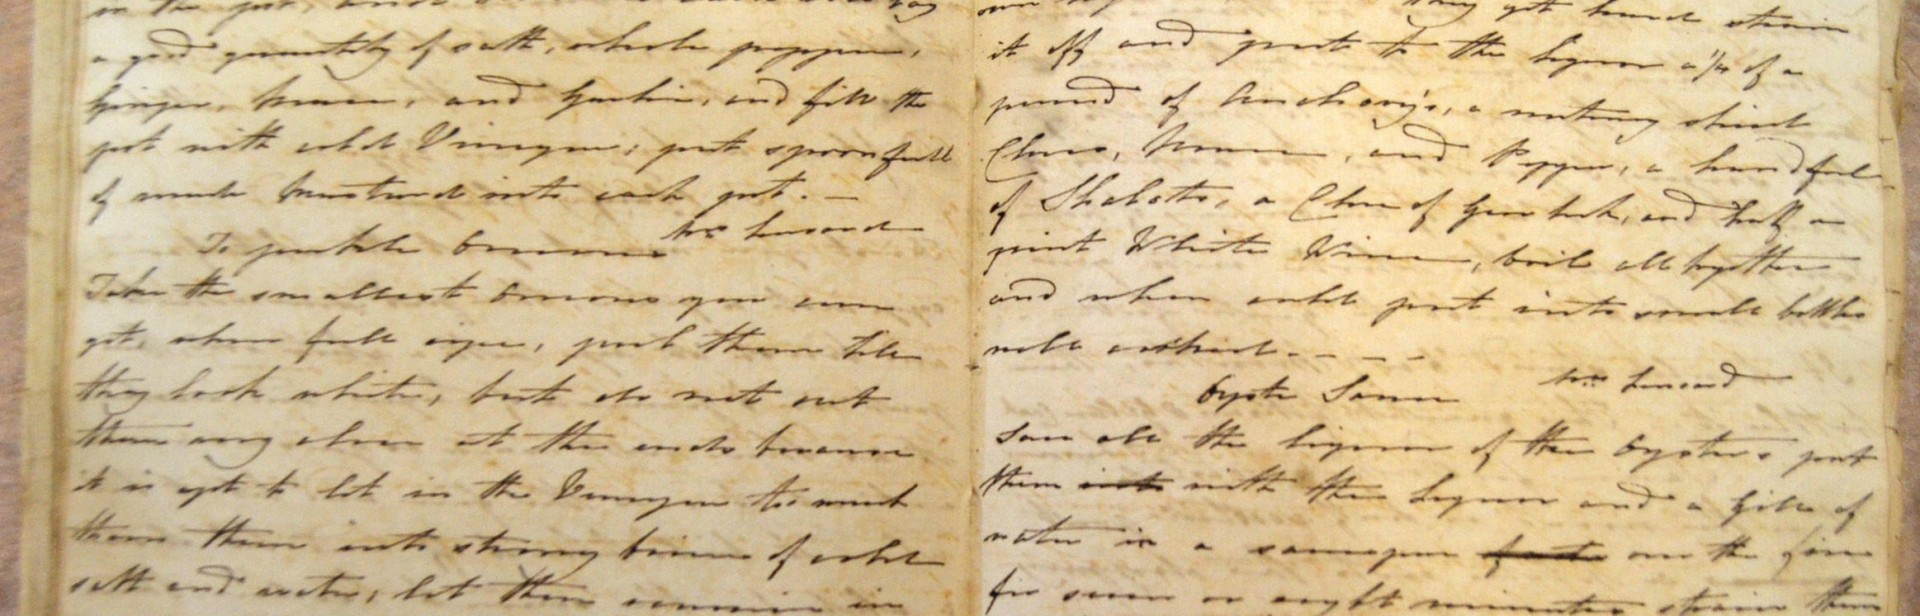 a good quantity of salt, whole pepper,
Ginger, Mace, and Garlic, and fill the
pot with cold Vinegar; put spoonfull
of made Mustard into each pot. —
To pickle Onions
Take the smallest Onions you can
get, when full ripe, peel them till
they look white, but do not cut
them any close at the ends because
it is apt to let in the Vinegar too much
throw them into strong brine of cold
salt and water, let them remain in
they get hard strain
it off and put to the liquor a ¼ of a
pound of Anchovy's, a nutmeg sliced
Cloves, Mace, and Pepper, a handful
of Shalots, a Clove of Garlick, and half a
pint White Wine, boil all together
and when cold put into small bottles
well corked. - - - -
Oyster Sauce
Save all the liquor of the Oysters put
them into with the Liquor and a Gill of
water in a saucepan on the fire
for seven or eight minutes strain the